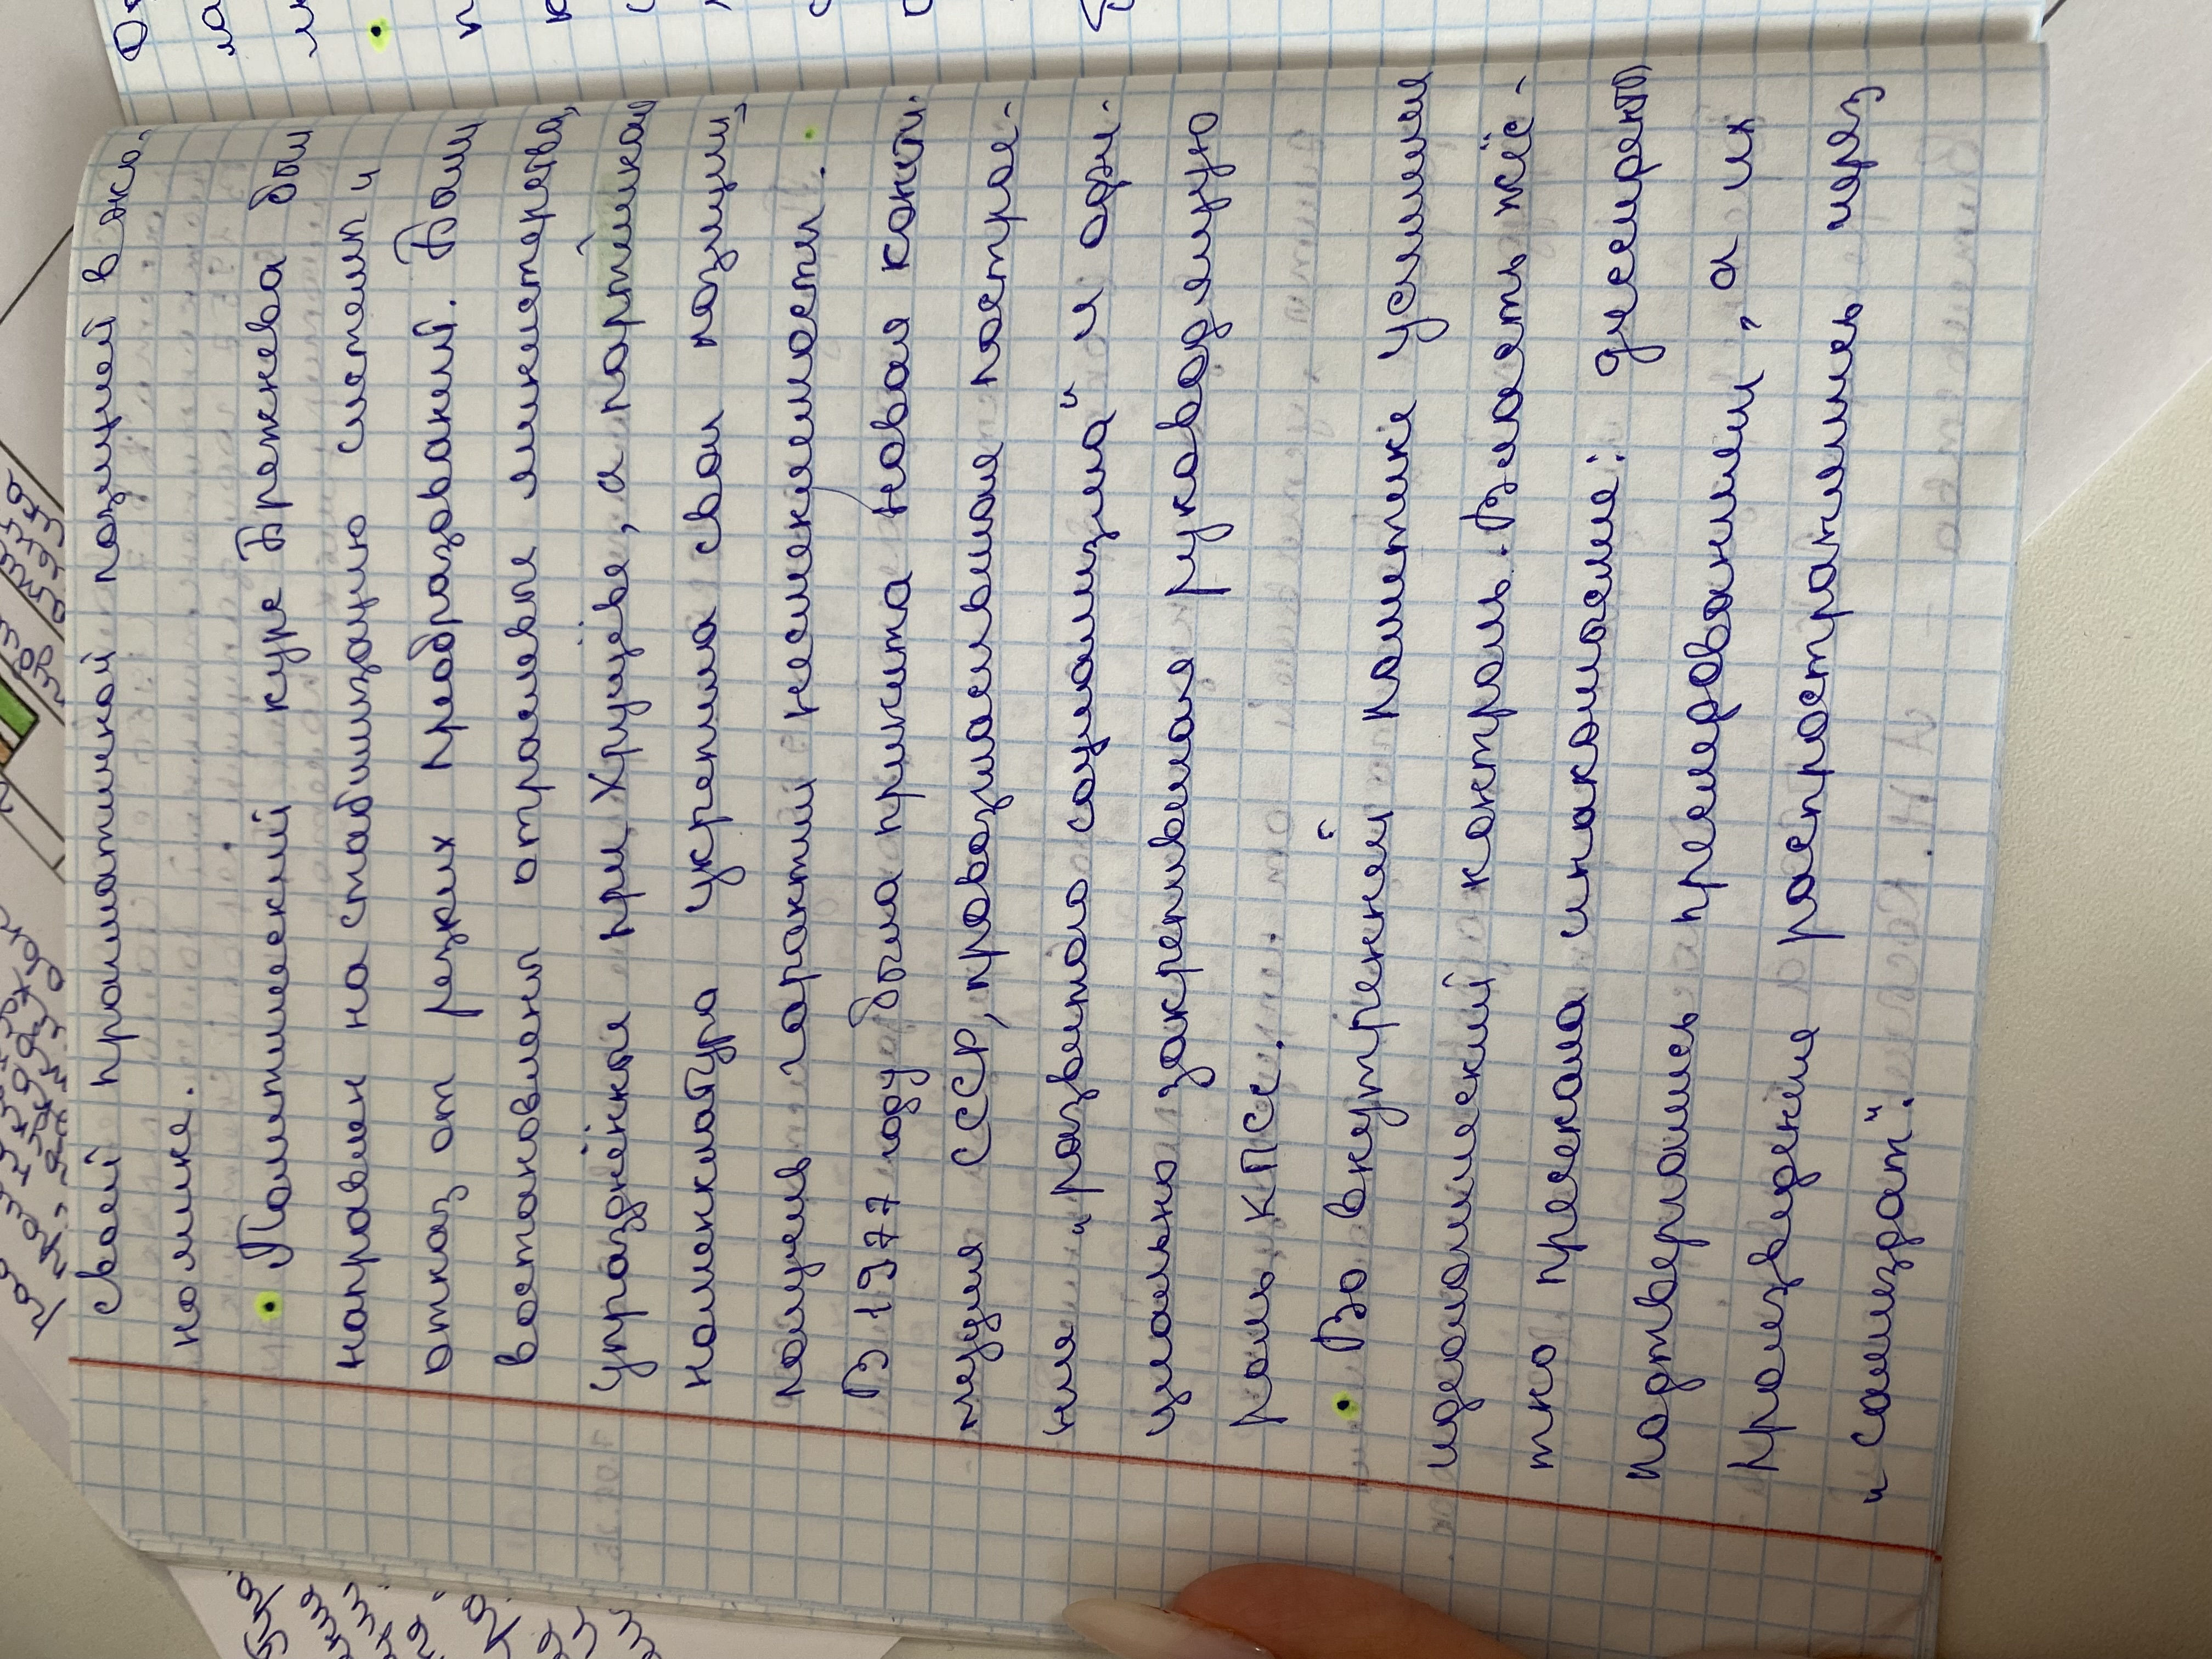 своей прагматичной позицией в эко-
номике.
• Политический курс Брежнева был
направлен на стабилизацию системы и
отказ от резких преобразований. Были
востановлены отраслевые министерства,
упразднённые при Хрущёве, а партийная
номенклатура укрепила свои позиции,
получив гарантии несменяемости.
В 1977 году была принята новая консти-
туция СССР, провозгласившая построе-
ние „развитого социализма" и офи-
циально закрепившая руководящую
роль КПСС.
• Во внутренней политике усилили
идеологический контроль. Власть жёс-
тко пресекала инакомыслие: диссиденты
подвергались преследованиям, а их
произведения распространялись через
„самиздат".